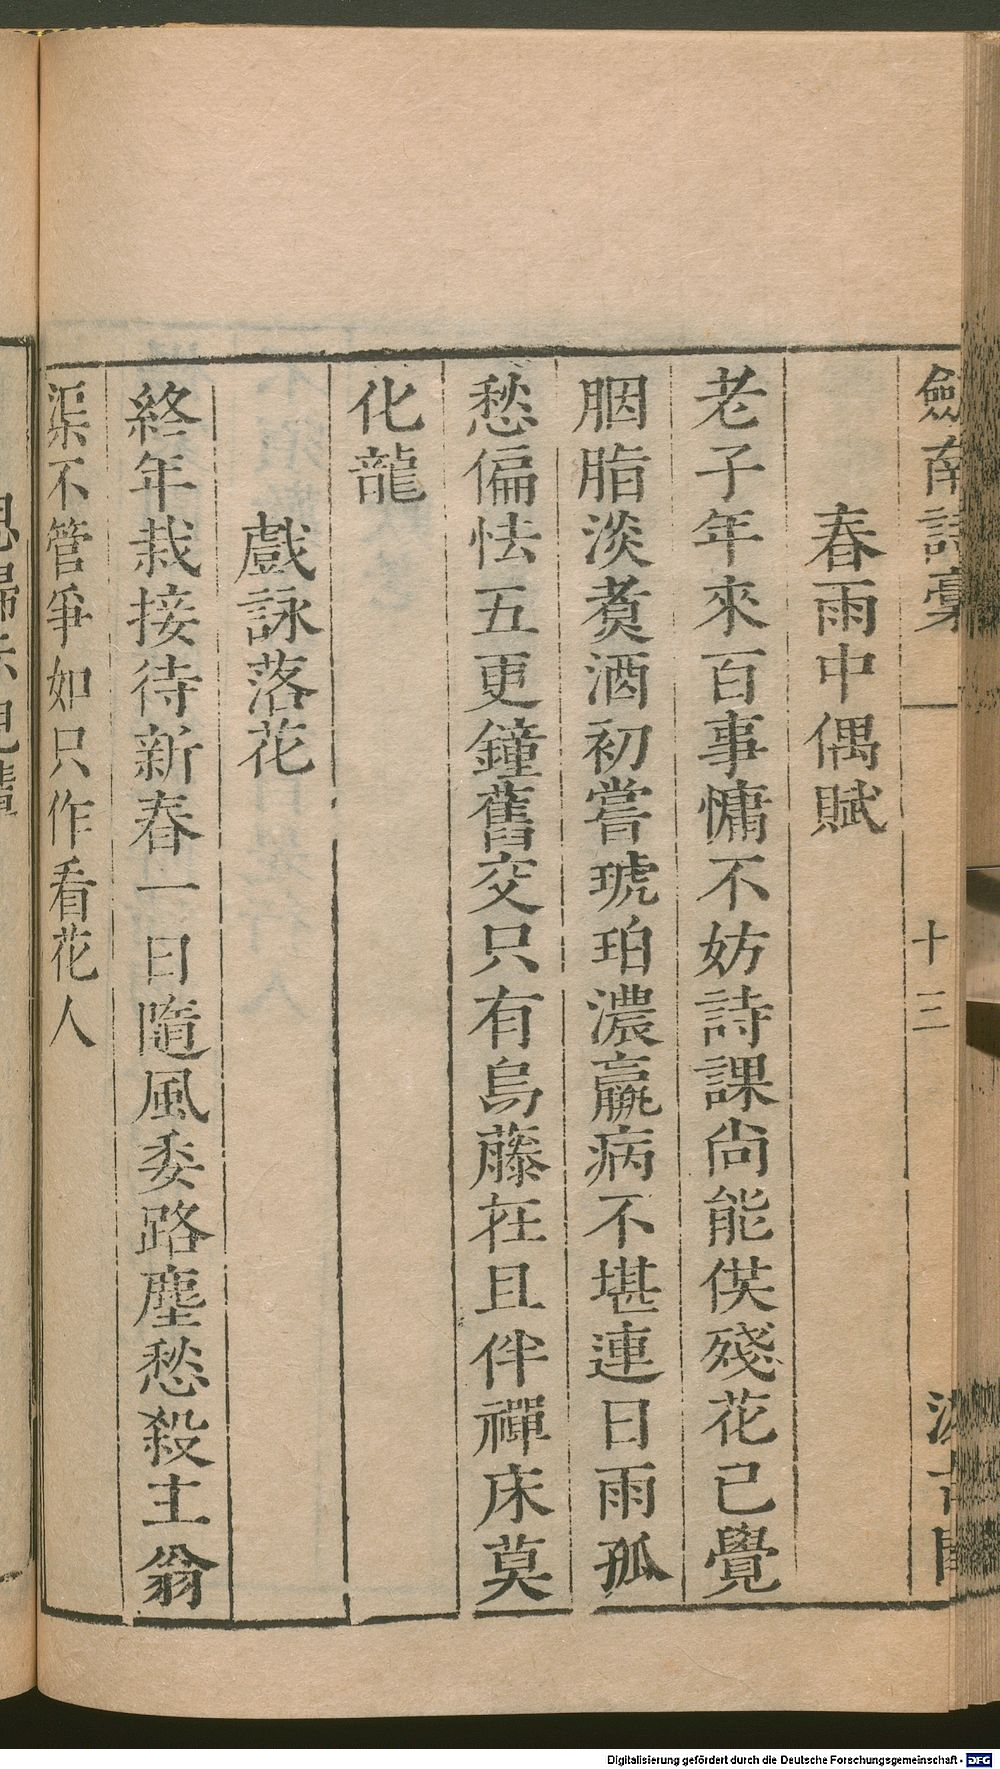 劍南詩稾
十三
春雨中偶賦
老子年來百事慵不妨詩課尚能供殘花已覺
胭脂淡煑酒初嘗琥珀濃羸病不堪連日雨孤
愁偏怯五更鐘舊交只有烏藤在且伴禪床莫
化龍
戲詠落花
終年栽接待新春一日隨風委路塵愁殺主翁
渠不管爭如只作看花人
Digitalisierung gefördert durch die Deutsche Forschungsgemeinschaft - DFG